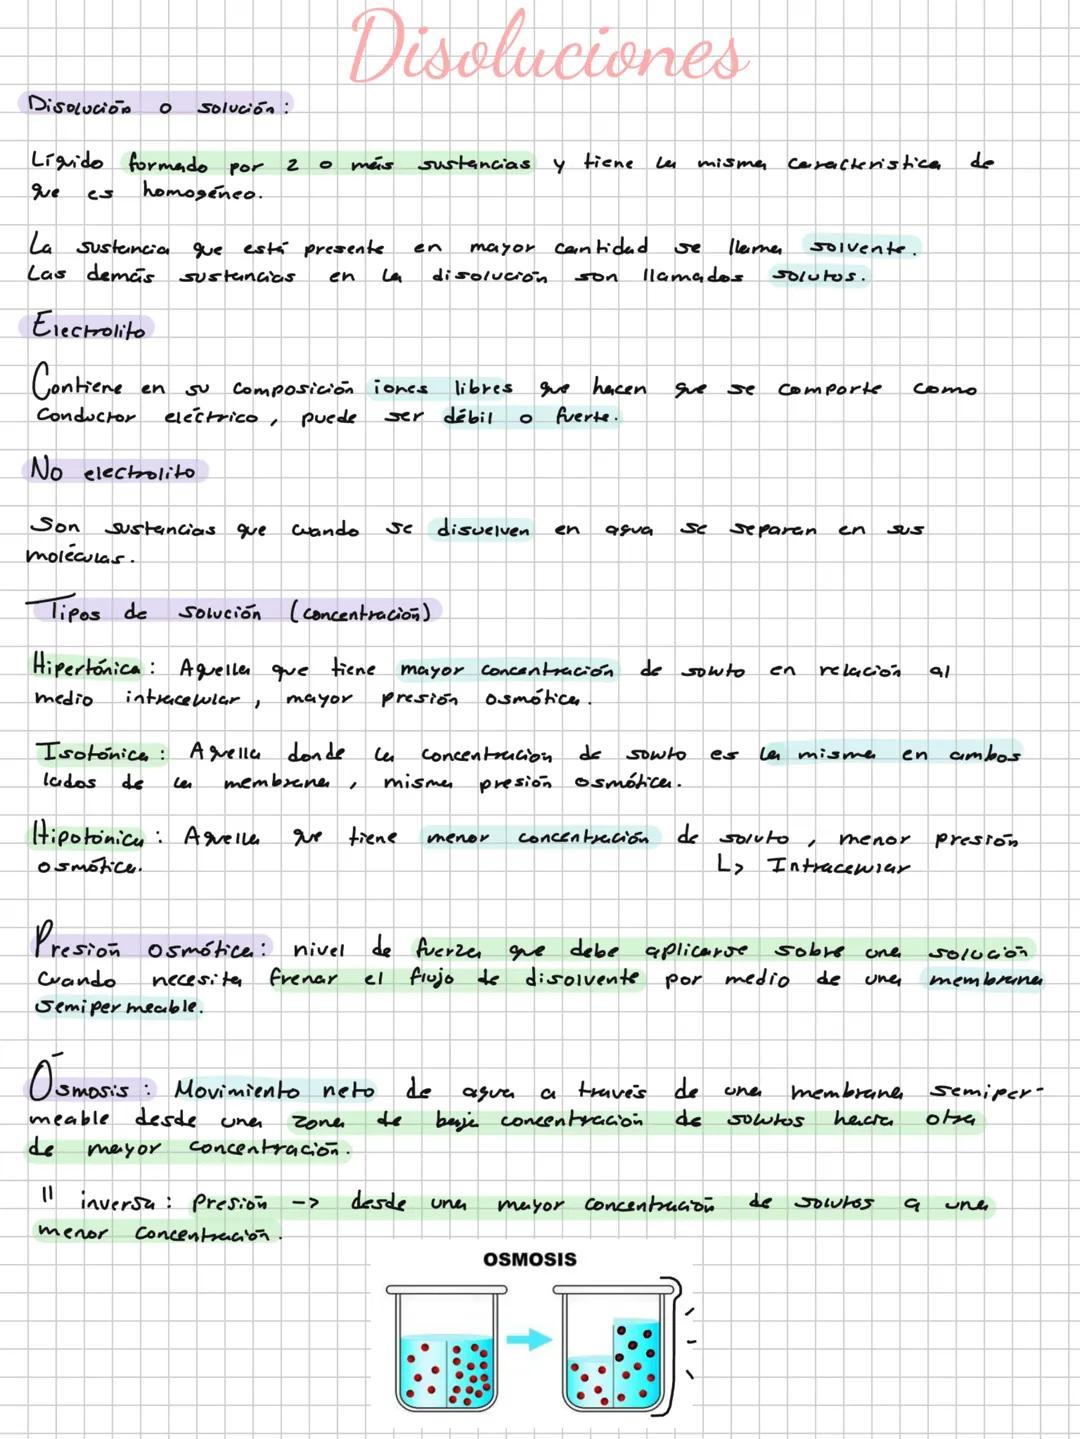 Disoluciones
Disolución o solución:
Líquido formado por 2 o más sustancias y tiene la misma característica de
que es homogéneo.
La sustancia que está presente en mayor cantidad se llama solvente.
Las demás sustancias en la disolución son llamados solutos.
Electrolito
Contiene en su composición iones libres que hacen que se comporte como
conductor eléctrico, puede ser débil o fuerte.
No electrolito
Son sustancias que cuando se disuelven en agua se separan en sus
moléculas.
Tipos de solución (concentración)
Hipertónica: Aquella que tiene mayor concentración de soluto en relación al
medio intracelular, mayor presión osmótica.
Isotónica: Aquella donde la concentración de soluto es la misma en ambos
lados de la membrana, misma presión osmótica.
Hipotónica: Aquella que tiene menor concentración de soluto, menor presión
osmótica. L> Intracelular
Presión osmótica: nivel de fuerza que debe aplicarse sobre una solución
cuando necesita frenar el flujo de disolvente por medio de una membrana
semipermeable.
Ósmosis: Movimiento neto de agua a través de una membrana semiper-
meable desde una zona de baja concentración de solutos hacia otra
de mayor concentración.
" inversa: Presión -> desde una mayor concentración de solutos a una
menor concentración.
OSMOSIS